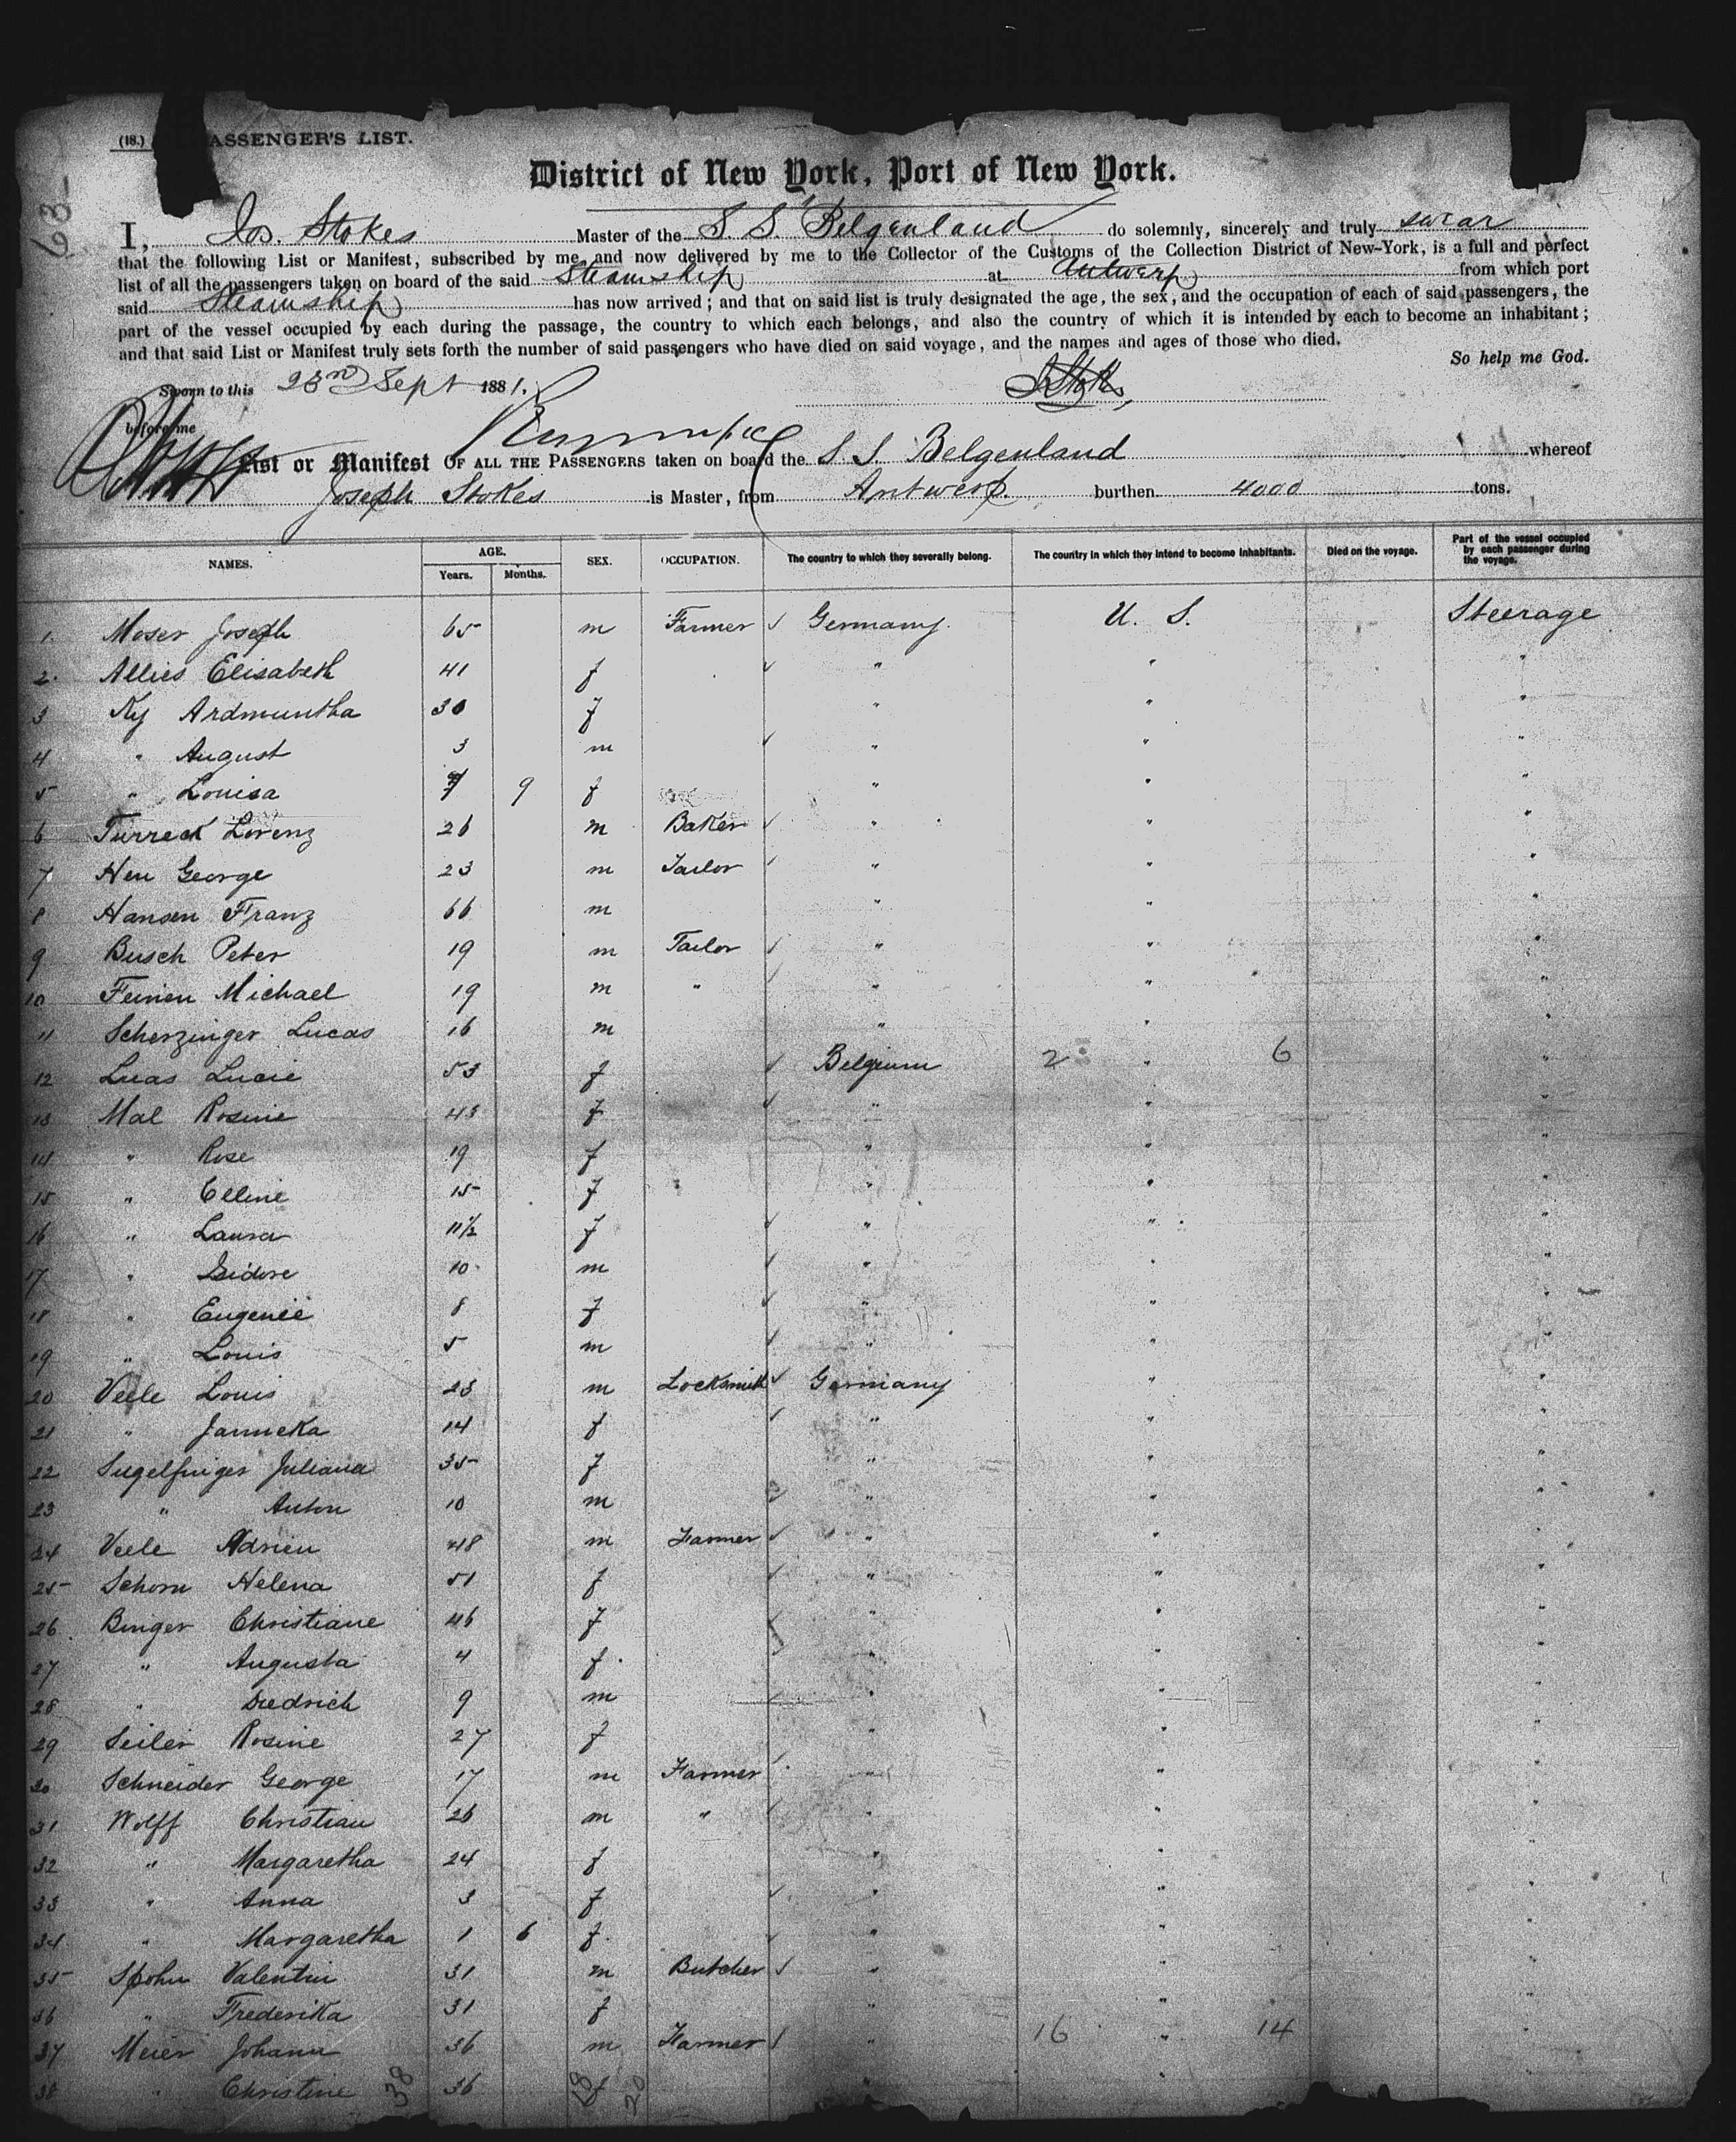 (18.) PASSENGER'S LIST.
63
District of New York, Port of New York.
I, Jos. Stokes Master of the S. S. Belgenland do solemnly, sincerely and truly swear
that the following List or Manifest, subscribed by me, and now delivered by me to the Collector of the Customs of the Collection District of New-York, is a full and perfect
list of all the passengers taken on board of the said Steamship at Antwerp from which port
said Steamship has now arrived; and that on said list is truly designated the age, the sex, and the occupation of each of said passengers, the
part of the vessel occupied by each during the passage, the country to which each belongs, and also the country of which it is intended by each to become an inhabitant;
and that said List or Manifest truly sets forth the number of said passengers who have died on said voyage, and the names and ages of those who died.
So help me God.
Sworn to this 23rd Sept 1881. J Stokes
before me
List or Manifest OF ALL THE PASSENGERS taken on board the S. S. Belgenland whereof
Joseph Stokes is Master, from Antwerp burthen 4000 tons.
NAMES. AGE. Years. Months. SEX. OCCUPATION. The country to which they severally belong. The country in which they intend to become inhabitants. Died on the voyage. Part of the vessel occupied by each passenger during the voyage.
1. Moser Joseph 65 m Farmer Germany. U. S. Steerage
2. Allies Elisabeth 41 f " " "
3 Ky Ardmuntha 30 f " " "
4 " August 3 m " " "
5 " Louisa 9 f " " "
6 Turreck Lorenz 26 m Baker " " "
7 Heu George 23 m Tailor " " "
8 Hansen Franz 66 m " " "
9 Busch Peter 19 m Tailor " " "
10 Feinen Michael 19 m " " " "
11 Scherzinger Lucas 16 m " " "
12 Lucas Lucie 53 f Belgium 2 " 6 "
13 Mal Rosine 43 f " " "
14 " Rose 19 f " " "
15 " Elline 15 f " " "
16 " Laura 11½ f " " "
17 " Isidore 10 m " " "
18 " Eugenie 8 f " " "
19 " Louis 5 m " " "
20 Veele Louis 23 m Locksmith Germany " "
21 " Janneka 14 f " " "
22 Sugelfinger Juliana 35 f " " "
23 " Anton 10 m " " "
24 Veele Adrien 48 m Farmer " " "
25 Schorn Helena 51 f " " "
26. Binger Christiane 46 f " " "
27 " Augusta 4 f " " "
28 " Diedrich 9 m " " "
29 Seiler Rosine 27 f " " "
30 Schneider George 17 m Farmer " " "
31 Wolff Christian 26 m " " " "
32 " Margaretha 24 f " " "
33 " Anna 3 f " " "
34 " Margaretha 1 6 f " " "
35 Spohn Valentin 31 m Butcher " " "
36 " Frederika 31 f " " "
37 Meier Johann 36 m Farmer " 16 " 14 "
38 " Christine 36 f " " "
38 18 20